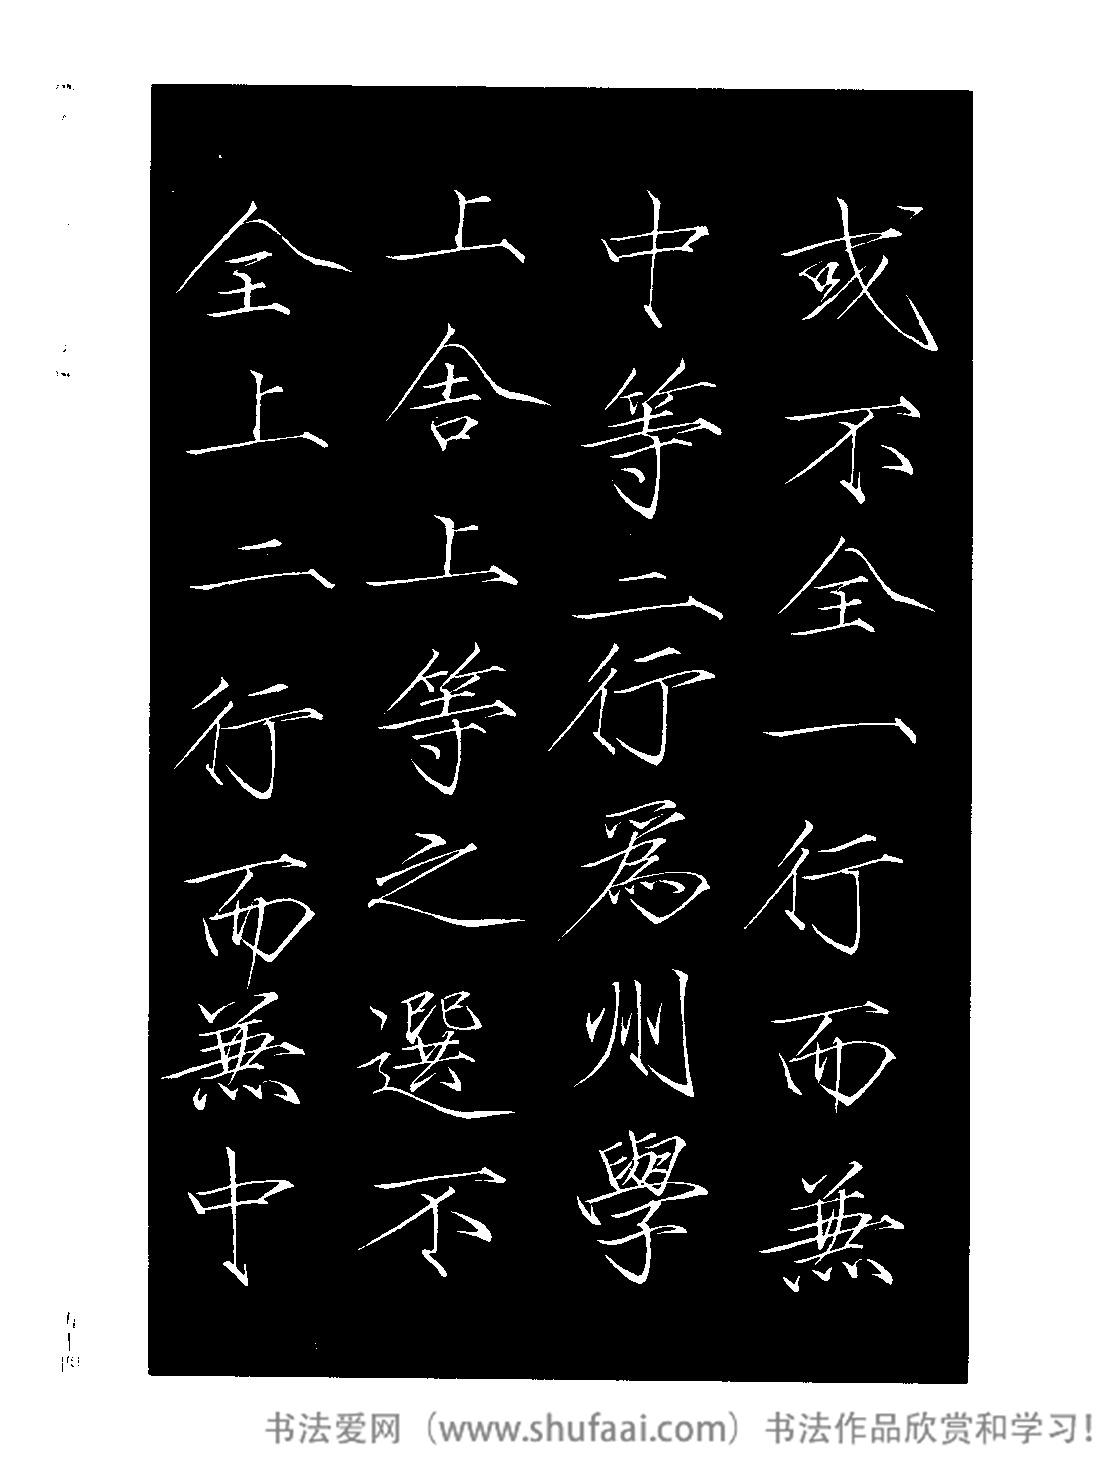 或不全一行而兼
中等二行為州學
上舍上等之選不
全上二行而兼中
书法爱网（www.shufaai.com）书法作品欣赏和学习！